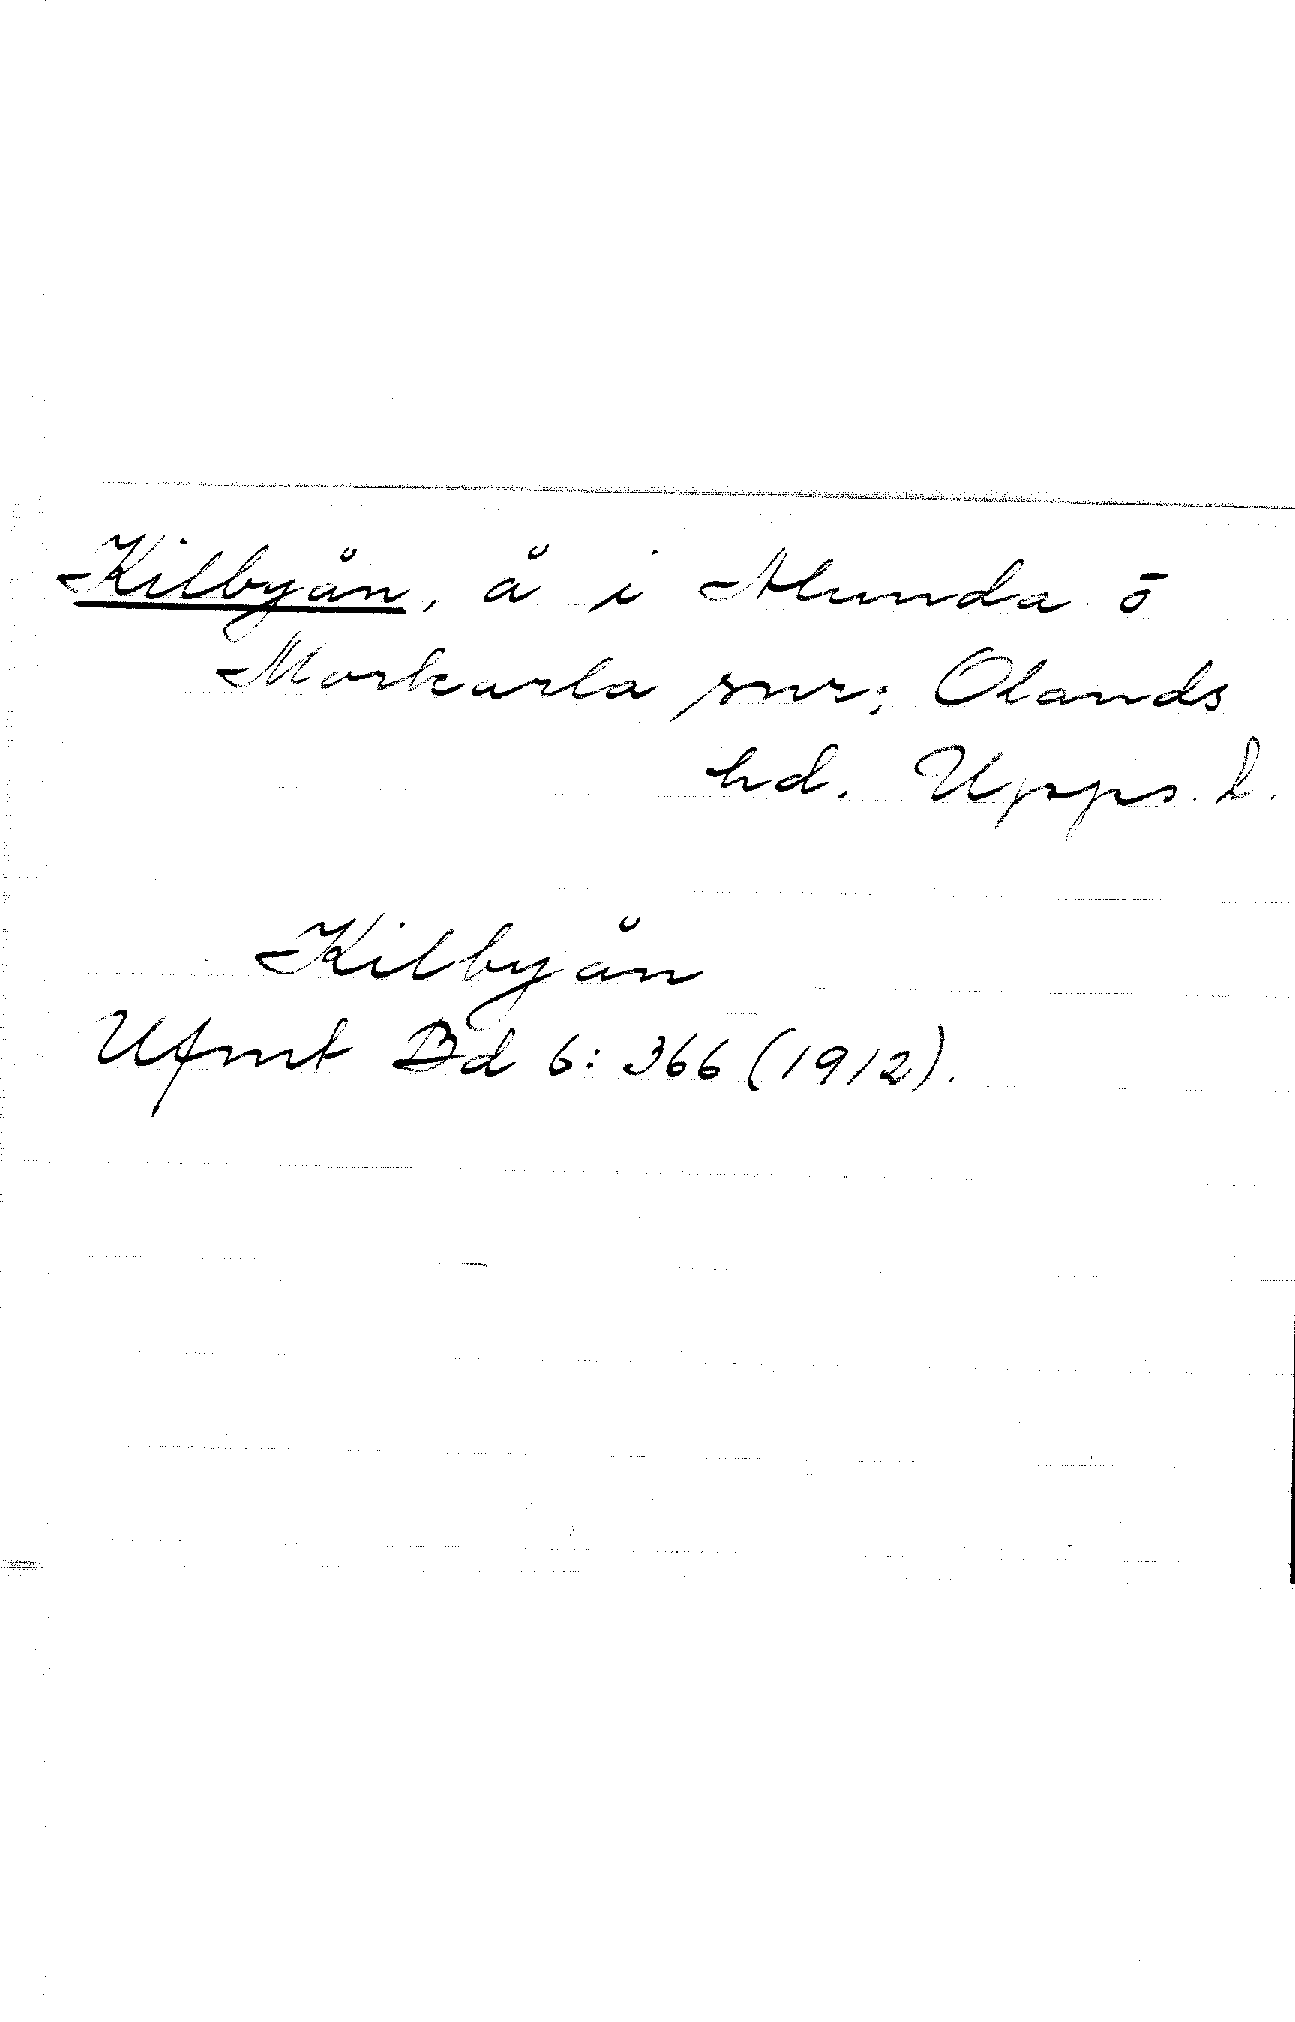 Kilbyån, å i Alunda o
Morkarla snr; Olands
hd. Upps. l.
Kilbyån
Ufmt Bd 6: 366 (1912).